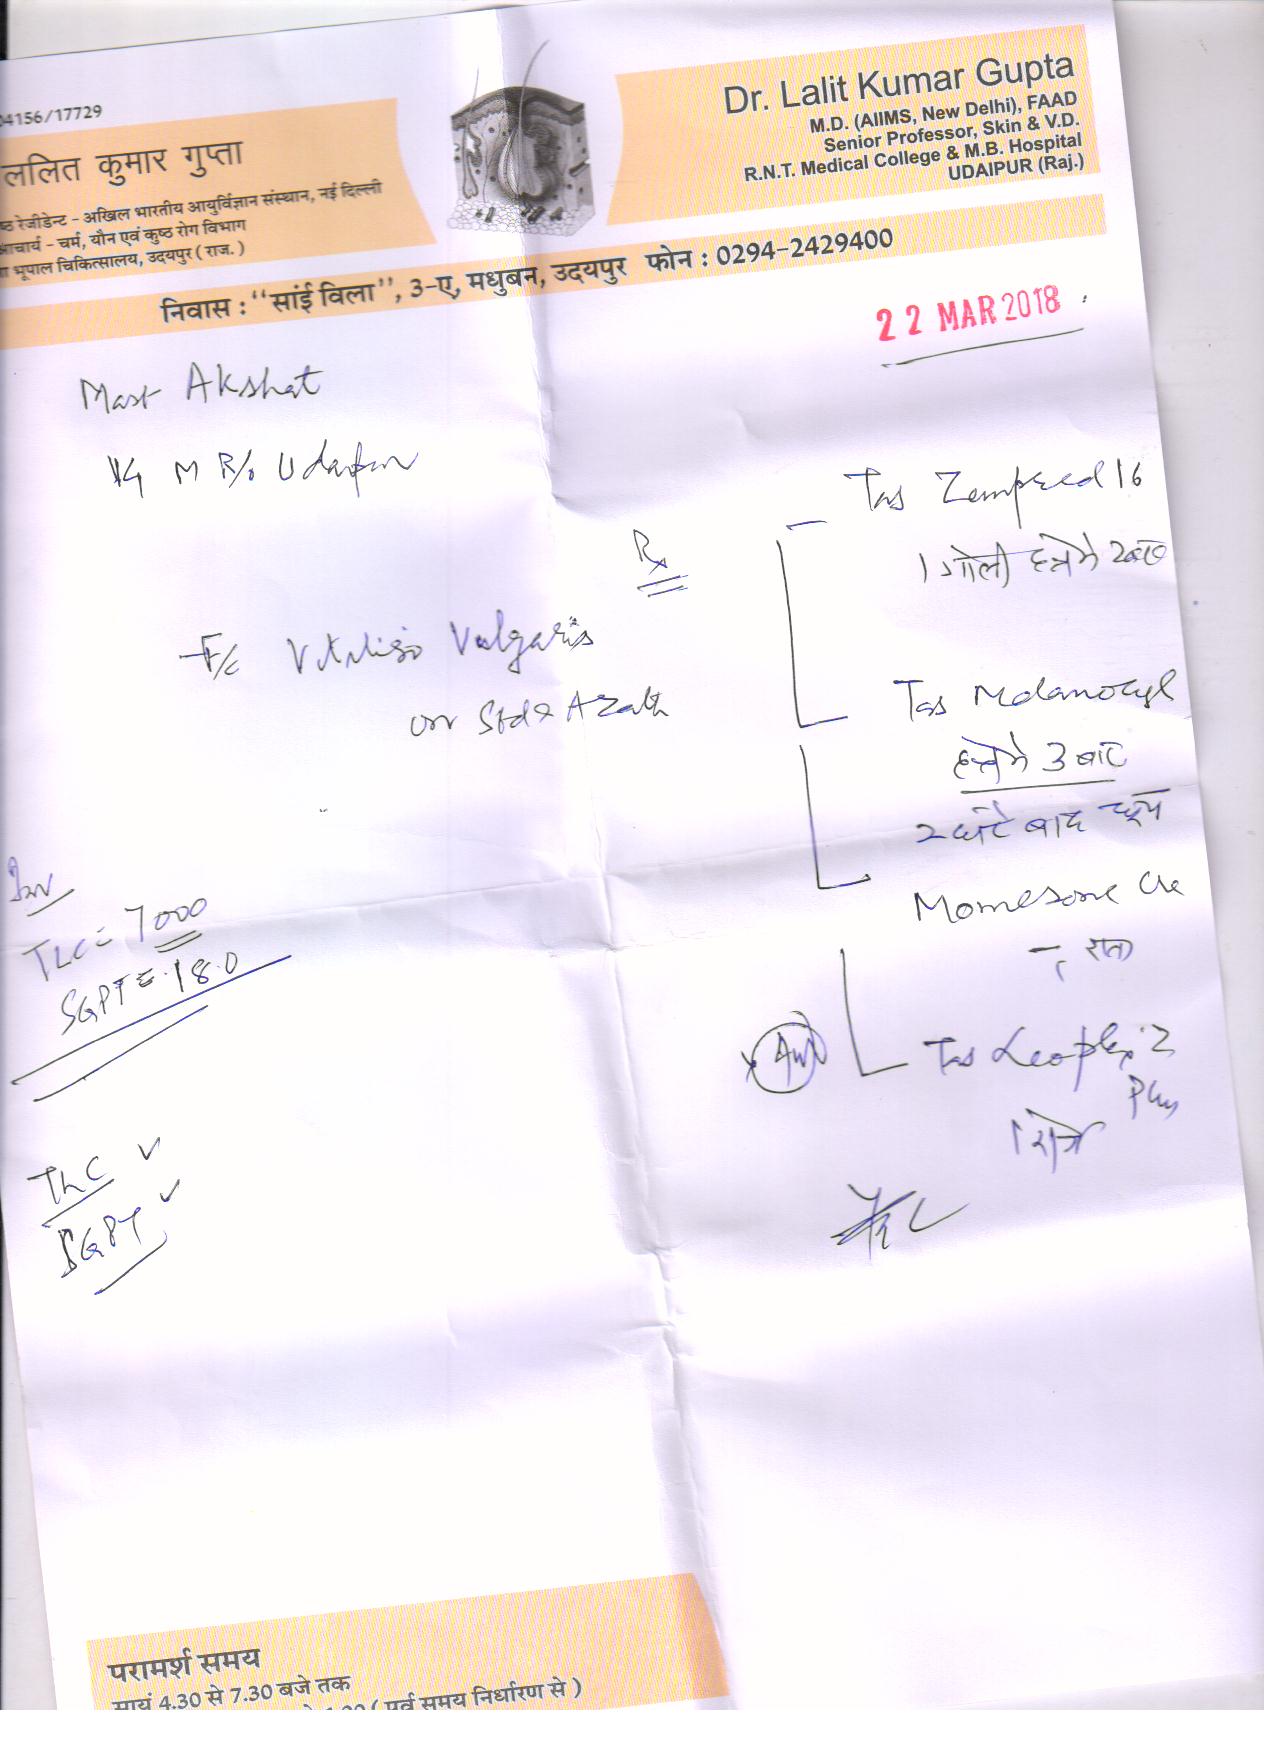 04156/17729
ललित कुमार गुप्ता
ष्ठ रेजीडेन्ट - अखिल भारतीय आयुर्विज्ञान संस्थान, नई दिल्ली
आचार्य - चर्म, यौन एवं कुष्ठ रोग विभाग
भूपाल चिकित्सालय, उदयपुर ( राज. )
Dr. Lalit Kumar Gupta
M.D. (AIIMS, New Delhi), FAAD
Senior Professor, Skin & V.D.
R.N.T. Medical College & M.B. Hospital
UDAIPUR (Raj.)
निवास : "सांई विला", 3-ए, मधुबन, उदयपुर फोन : 0294-2429400
22 MAR 2018
Mast Akshat
M R/o Udaipur
Rx
F/c Vitiligo Vulgaris
on
Inv
TLC = 7000
SGPT = 18.0
TLC ✓
SGPT ✓
Tab Zempred 16
1 गोली हफ्ते मे 2 बार
Tab Melanocyl
हफ्ते मे 3 बार
2 घंटे बाद धूप
Momesone Cre
रात
Tab
परामर्श समय
सायं 4.30 से 7.30 बजे तक
( पूर्व समय निर्धारण से )